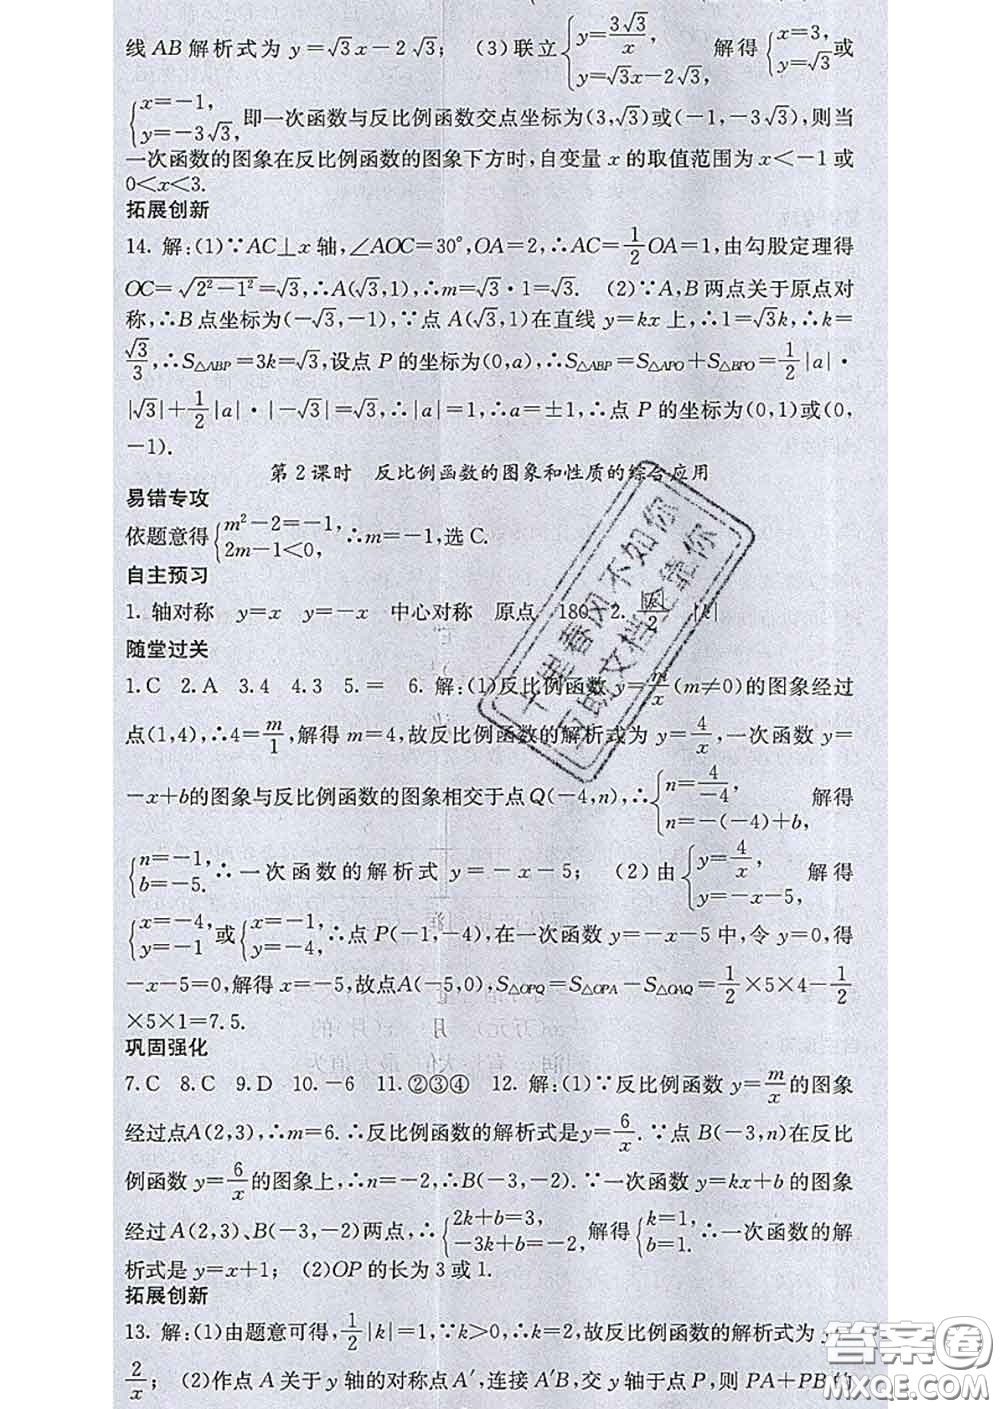 线AB解析式为y=√3x-2√3; (3)联立{y=3√3/x, y=√3x-2√3, 解得{x=3, y=√3或
{x=-1, y=-3√3, 即一次函数与反比例函数交点坐标为(3,√3)或(-1,-3√3),则当
一次函数的图象在反比例函数的图象下方时,自变量x的取值范围为x<-1或
0<x<3.
拓展创新
14. 解:(1)∵AC⊥x轴,∠AOC=30°,OA=2,∴AC=1/2OA=1,由勾股定理得
OC=√(2²-1²)=√3,∴A(√3,1),∴m=√3·1=√3. (2)∵A,B两点关于原点对
称,∴B点坐标为(-√3,-1),∵点A(√3,1)在直线y=kx上,∴1=√3k,∴k=
√3/3,∴S△ABP=3k=√3,设点P的坐标为(0,a),∴S△ABP=S△APO+S△BPO=1/2|a|·
|√3|+1/2|a|·|-√3|=√3,∴|a|=1,∴a=±1,∴点P的坐标为(0,1)或(0,
-1).
第2课时 反比例函数的图象和性质的综合应用
易错专攻
依题意得{m²-2=-1, 2m-1<0, ∴m=-1,选C.
自主预习
1. 轴对称 y=x y=-x 中心对称 原点 180 2. |k|/2 |k|
随堂过关
1.C 2.A 3.4 4.3 5.= 6. 解:(1)反比例函数y=m/x(m≠0)的图象经过
点(1,4),∴4=m/1,解得m=4,故反比例函数的解析式为y=4/x,一次函数y=
-x+b的图象与反比例函数的图象相交于点Q(-4,n),∴{n=4/-4, n=-(-4)+b, 解得
{n=-1, b=-5. ∴一次函数的解析式y=-x-5; (2)由{y=4/x, y=-x-5, 解得
{x=-4, y=-1或{x=-1, y=-4, ∴点P(-1,-4),在一次函数y=-x-5中,令y=0,得
-x-5=0,解得x=-5,故点A(-5,0),S△OPQ=S△OPA-S△OAQ=1/2×5×4-1/2
×5×1=7.5.
巩固强化
7.C 8.C 9.D 10.-6 11.②③④ 12. 解:(1)∵反比例函数y=m/x的图象
经过点A(2,3),∴m=6.∴反比例函数的解析式是y=6/x.∵点B(-3,n)在反比
例函数y=6/x的图象上,∴n=-2,∴B(-3,-2).∵一次函数y=kx+b的图象
经过A(2,3)、B(-3,-2)两点,∴{2k+b=3, -3k+b=-2, 解得{k=1, b=1. ∴一次函数的解
析式是y=x+1; (2)OP的长为3或1.
拓展创新
13. 解:(1)由题意可得,1/2|k|=1,∵k>0,∴k=2,故反比例函数的解析式为y=
2/x; (2)作点A关于y轴的对称点A′,连接A′B,交y轴于点P,则PA+PB的
十里春风不如你
互联文档全靠你
答案圈
MXQE.COM